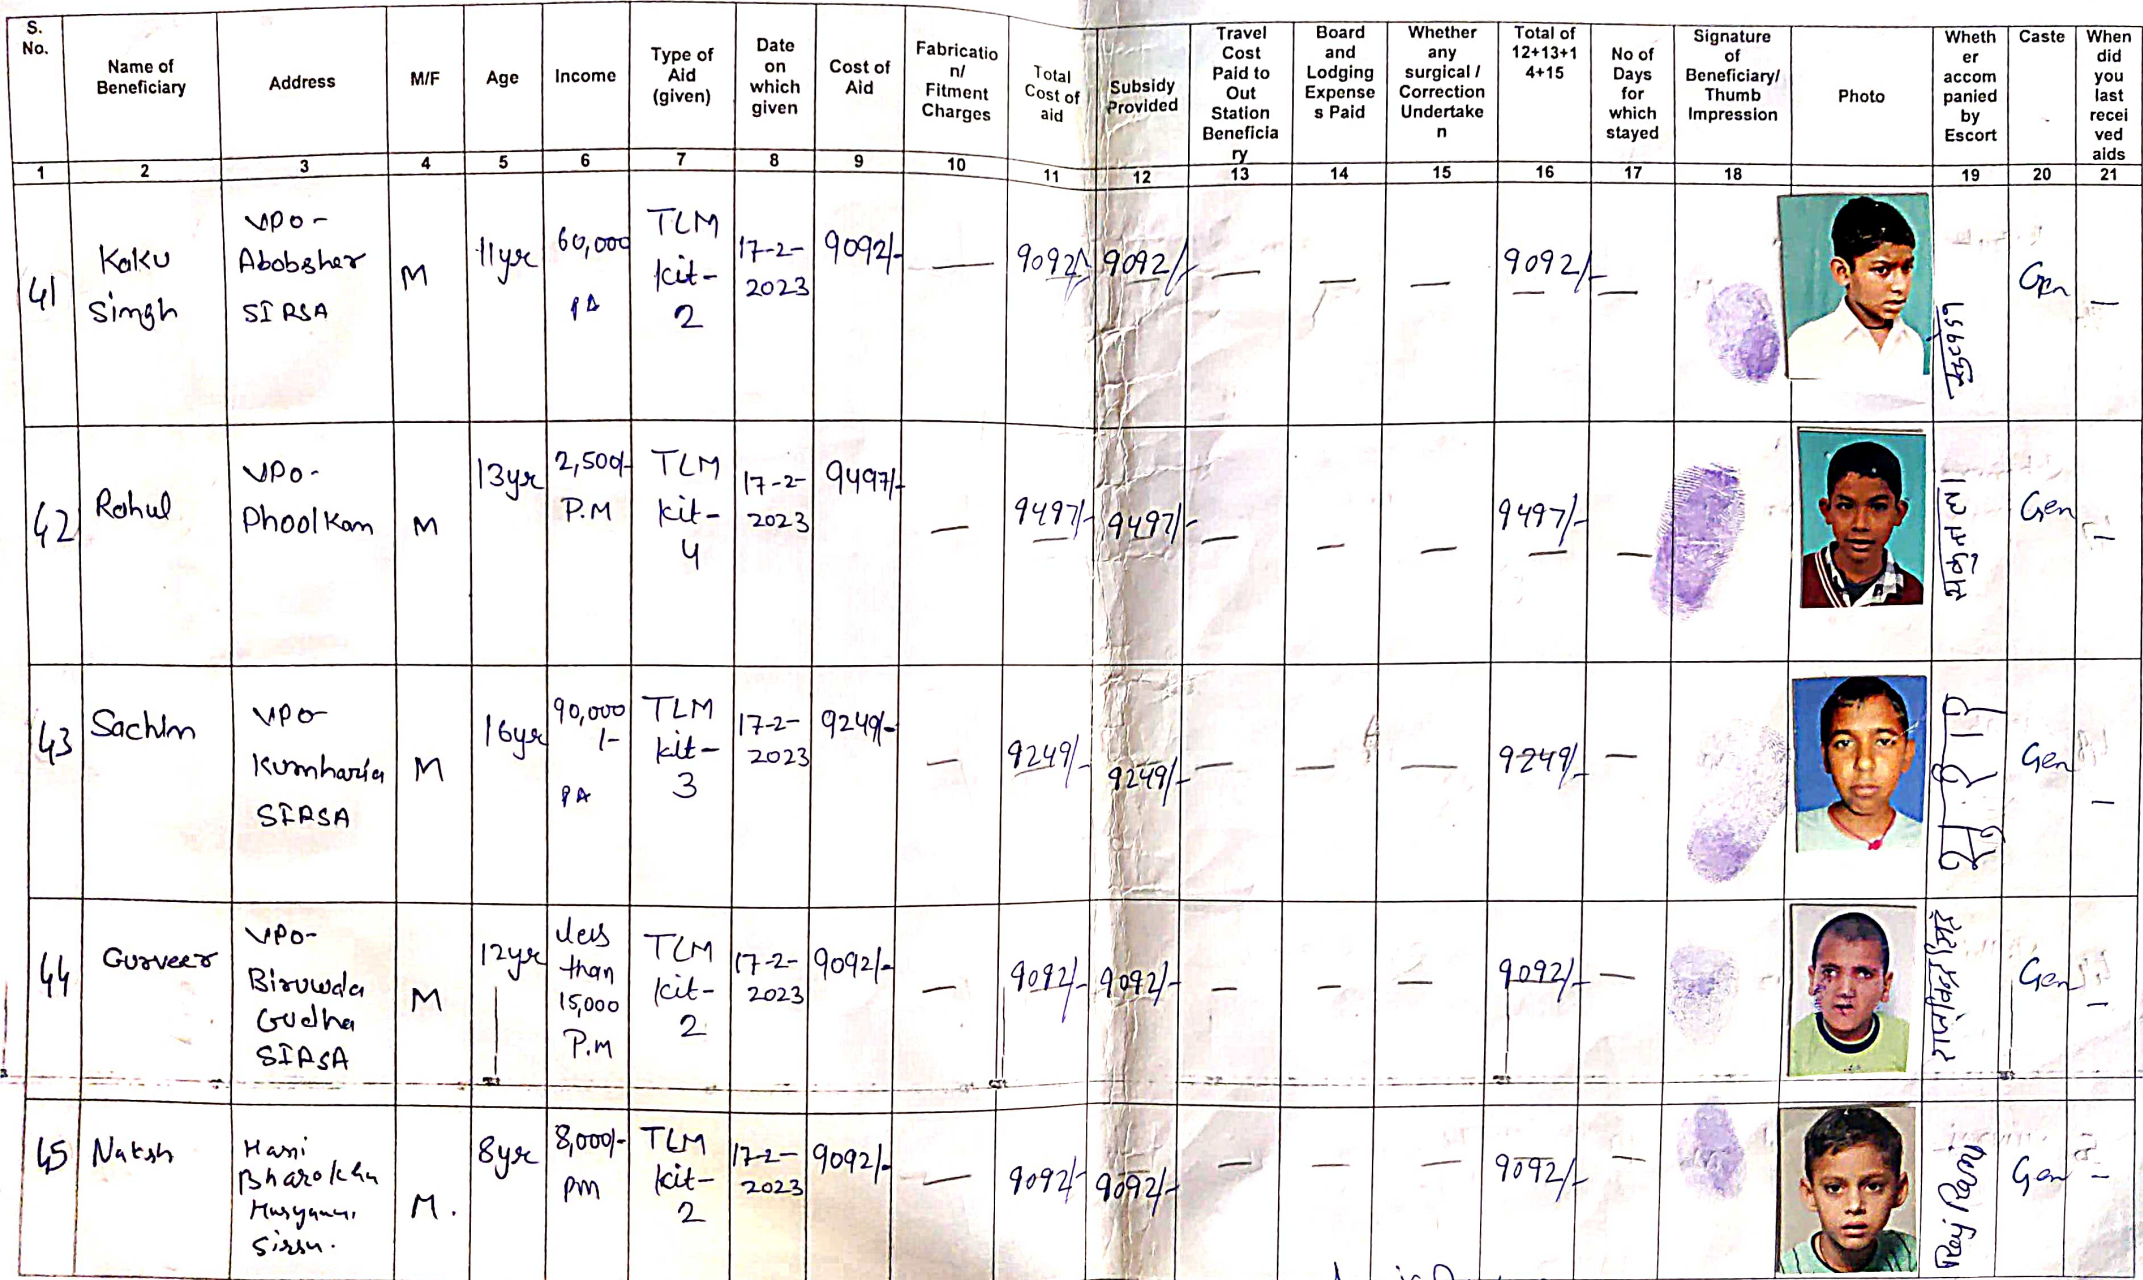 S. No.
Name of Beneficiary
Address
M/F
Age
Income
Type of Aid (given)
Date on which given
Cost of Aid
Fabricatio n/ Fitment Charges
Total Cost of aid
Subsidy Provided
Travel Cost Paid to Out Station Beneficia ry
Board and Lodging Expense s Paid
Whether any surgical / Correction Undertake n
Total of 12+13+1 4+15
No of Days for which stayed
Signature of Beneficiary/ Thumb Impression
Photo
Wheth er accom panied by Escort
Caste
When did you last recei ved aids
1 2 3 4 5 6 7 8 9 10 11 12 13 14 15 16 17 18 19 20 21
41 Kaku Singh VPO- Abobsher SIRSA M 11yr 60,000 PA TLM kit-2 17-2-2023 9092/- — 9092/- 9092/- — — — 9092/- — Gen —
42 Rahul VPO- Phoolkan M 13yr 2,500/- P.M TLM kit-4 17-2-2023 9497/- — 9497/- 9497/- — — — 9497/- — Gen —
43 Sachin VPO- Kumharia SIRSA M 16yr 90,000/- PA TLM kit-3 17-2-2023 9249/- — 9249/- 9249/- — — — 9249/- — Gen —
44 Gurveer VPO- Biruwala Gudha SIRSA M 12yr less than 15,000 P.M TLM kit-2 17-2-2023 9092/- — 9092/- 9092/- — — — 9092/- — Gen —
45 Naksh Hani Bharokha Haryana, Sirsa. M. 8yr 8,000/- PM TLM kit-2 17-2-2023 9092/- — 9092/- 9092/- — — — 9092/- — Gen —